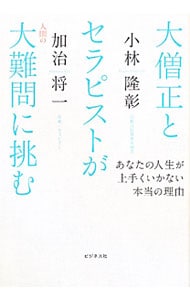 大僧正と
小林 隆彰
セラピストが
加治 将一
人間の
大難問に挑む
あなたの人生が
上手くいかない
本当の理由
ビジネス社